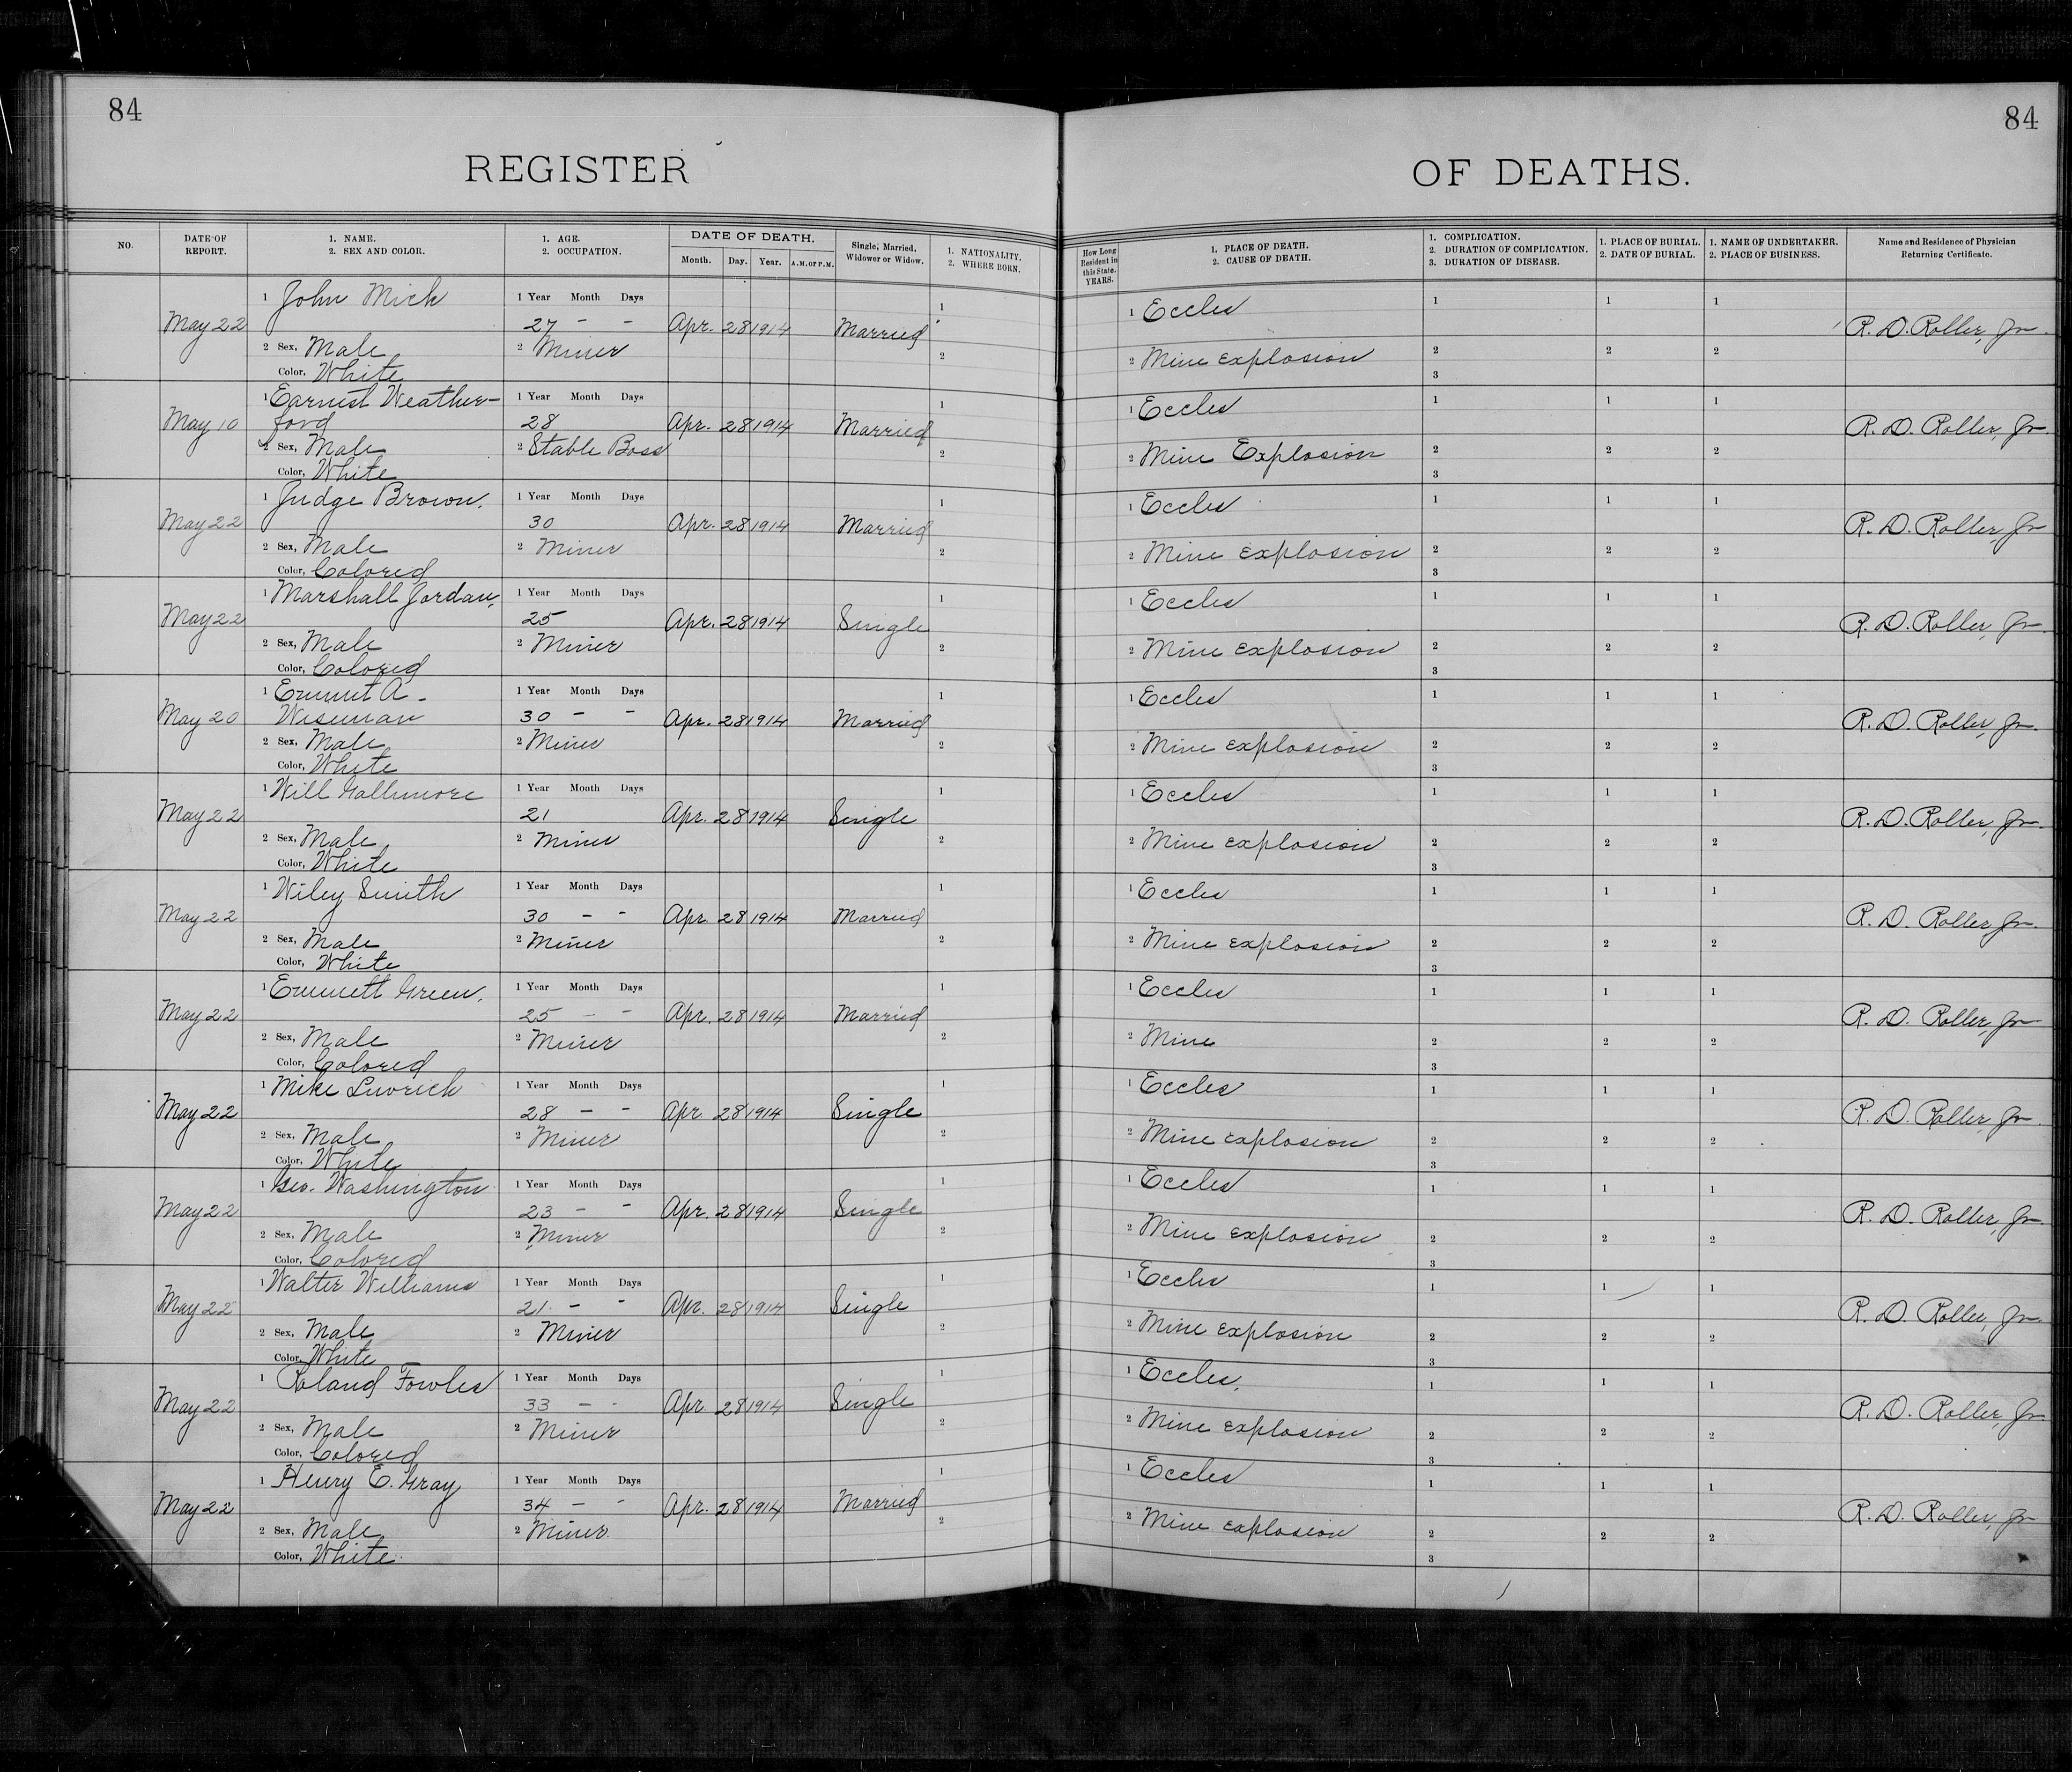 84
84
REGISTER
OF DEATHS.
NO.
DATE OF REPORT.
1. NAME.
2. SEX AND COLOR.
1. AGE.
2. OCCUPATION.
DATE OF DEATH.
Month. Day. Year. A.M. or P.M.
Single, Married, Widower or Widow.
1. NATIONALITY.
2. WHERE BORN.
How Long Resident in this State. YEARS.
1. PLACE OF DEATH.
2. CAUSE OF DEATH.
1. COMPLICATION.
2. DURATION OF COMPLICATION.
3. DURATION OF DISEASE.
1. PLACE OF BURIAL.
2. DATE OF BURIAL.
1. NAME OF UNDERTAKER.
2. PLACE OF BUSINESS.
Name and Residence of Physician Returning Certificate.
1 John Mick 1 Year Month Days 1 1 Eccles 1 1 1
May 22 27 - - Apr. 28 1914 Married R. D. Roller, Jr
2 Sex, Male 2 Miner 2 2 Mine explosion 2 2 2
Color, White 3
1 Earnest Weather- 1 Year Month Days 1 1 Eccles 1 1 1
May 10 ford 28 Apr. 28 1914 Married R. D. Roller, Jr.
2 Sex, Male 2 Stable Boss 2 2 Mine Explosion 2 2 2
Color, White 3
1 Judge Brown. 1 Year Month Days 1 1 Eccles 1 1 1
May 22 30 Apr. 28 1914 Married R. D. Roller, Jr
2 Sex, Male 2 Miner 2 2 Mine explosion 2 2 2
Color, Colored 3
1 Marshall Jordan, 1 Year Month Days 1 1 Eccles 1 1 1
May 22 25 Apr. 28 1914 Single R. D. Roller, Jr.
2 Sex, Male 2 Miner 2 2 Mine explosion 2 2 2
Color, Colored 3
1 Emmit A - 1 Year Month Days 1 1 Eccles 1 1 1
May 20 Wiseman 30 - - Apr. 28 1914 Married R. D. Roller, Jr.
2 Sex, Male 2 Miner 2 2 Mine explosion 2 2 2
Color, White 3
1 Will Gallimore 1 Year Month Days 1 1 Eccles 1 1 1
May 22 21 Apr. 28 1914 Single R. D. Roller, Jr.
2 Sex, Male 2 Miner 2 2 Mine explosion 2 2 2
Color, White 3
1 Wiley Smith 1 Year Month Days 1 1 Eccles 1 1 1
May 22 30 - - Apr. 28 1914 Married R. D. Roller, Jr.
2 Sex, Male 2 Miner 2 2 Mine explosion 2 2 2
Color, White 3
1 Emmett Green. 1 Year Month Days 1 1 Eccles 1 1 1
May 22 25 - - Apr. 28 1914 Married R. D. Roller, Jr
2 Sex, Male 2 Miner 2 2 Mine 2 2 2
Color, Colored 3
1 Mike 1 Year Month Days 1 1 Eccles 1 1 1
May 22 28 - - Apr. 28 1914 Single R. D. Roller, Jr.
2 Sex, Male 2 Miner 2 2 Mine explosion 2 2 2
Color, White 3
1 Geo. Washington 1 Year Month Days 1 1 Eccles 1 1 1
May 22 23 - - Apr. 28 1914 Single R. D. Roller, Jr.
2 Sex, Male 2 Miner 2 2 Mine explosion 2 2 2
Color, Colored 3
1 Walter Williams 1 Year Month Days 1 1 Eccles 1 1 1
May 22 21 - - Apr. 28 1914 Single R. D. Roller, Jr.
2 Sex, Male 2 Miner 2 2 Mine explosion 2 2 2
Color, White 3
1 Roland Fowles 1 Year Month Days 1 1 Eccles. 1 1 1
May 22 33 - - Apr. 28 1914 Single R. D. Roller, Jr
2 Sex, Male 2 Miner 2 2 Mine explosion 2 2 2
Color, Colored 3
1 Henry E. Gray 1 Year Month Days 1 1 Eccles 1 1 1
May 22 34 - - Apr. 28 1914 Married R. D. Roller, Jr
2 Sex, Male 2 Miner 2 2 Mine explosion 2 2 2
Color, White. 3